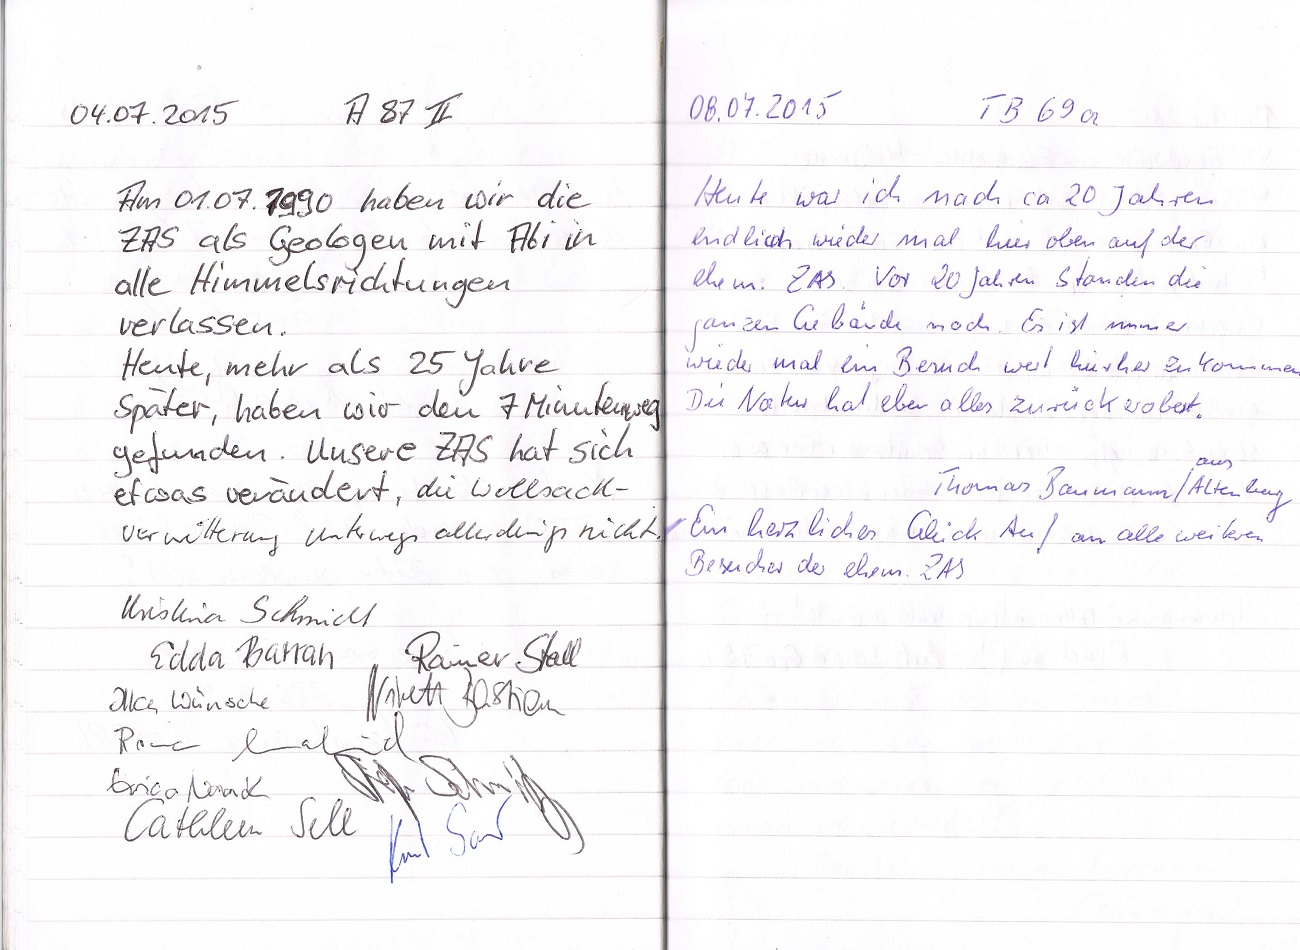 04.07.2015 A 87 II
Am 01.07.1990 haben wir die
ZAS als Geologen mit Abi in
alle Himmelsrichtungen
verlassen.
Heute, mehr als 25 Jahre
später, haben wir den 7 Minutenweg
gefunden. Unsere ZAS hat sich
etwas verändert, die Wollsack-
verwitterung unterwegs allerdings nicht.
Kristina Schmidt
Edda Barran Rainer Stall
Ilka Wünsche Bastian
Cathleen Sell
08.07.2015 TB 69 a
Heute war ich nach ca 20 Jahren
endlich wieder mal hier oben auf der
ehem. ZAS. Vor 20 Jahren standen die
ganzen Gebäude noch. Es ist immer
wieder mal ein Besuch wert hierher zu kommen
Die Natur hat eben alles zurück erobert.
Thomas Baumann / aus Altenberg
Ein herzliches Glück Auf an alle weiteren
Besucher der ehem. ZAS